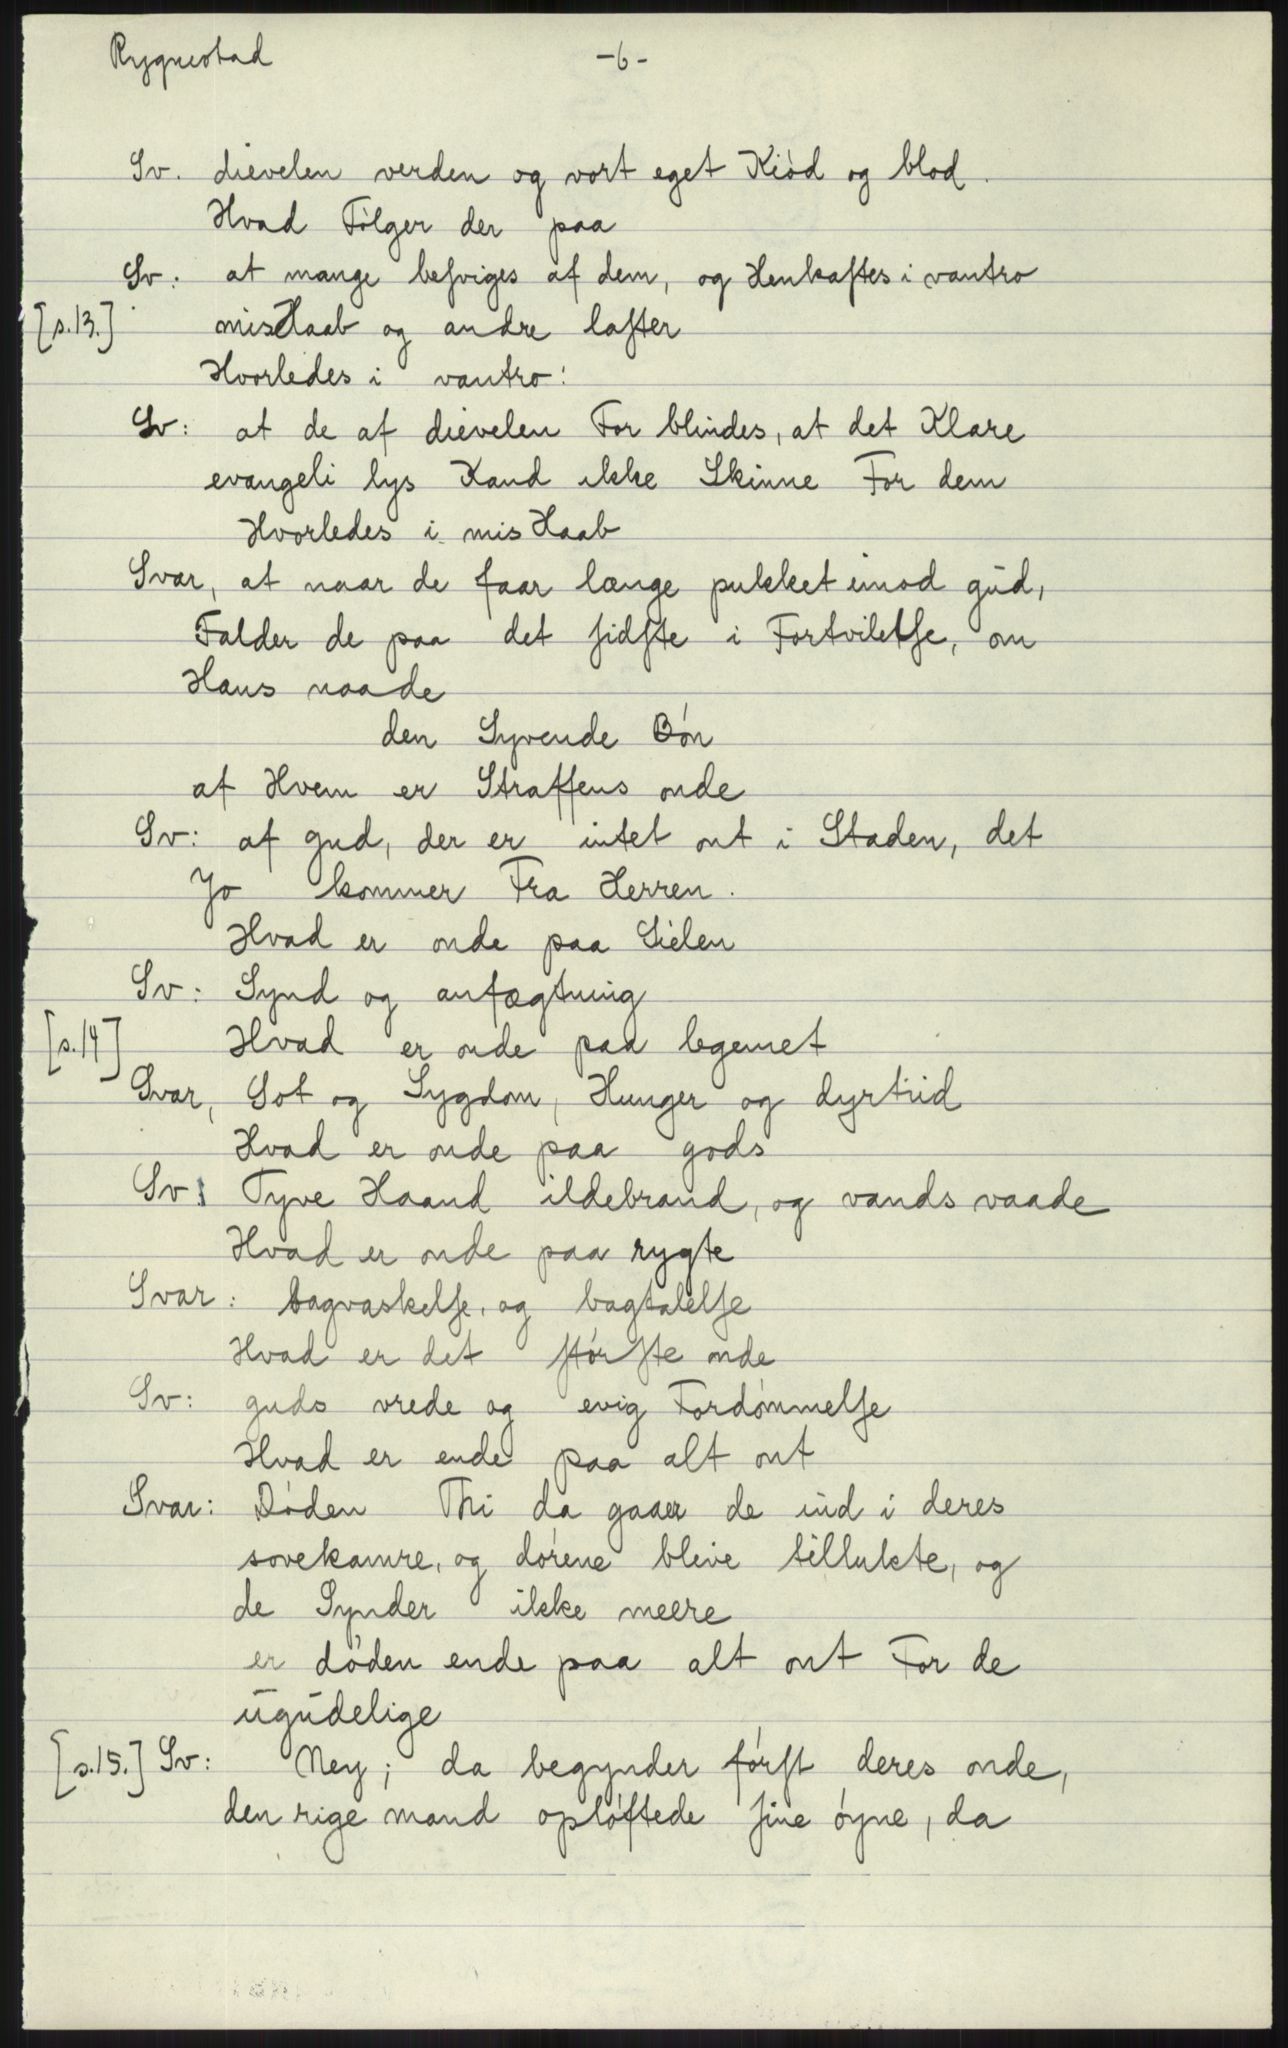 Rygnestad -6-
Sv. dievelen verden og vort eget Kiód og blod.
Hvad Fólger der paa
Sv: at mange beſviges af dem, og Henkaſtes i vantro
[s.13.] misHaab og andre laſter
Hvorledes i vantro:
Sv: at de af dievelen For blindes, at det Klare
evangeli lys Kand ikke Skinne For dem
Hvorledes i mis Haab
Svar, at naar de faar længe pukket imod gŭd,
Falder de paa det ſidſte i Fortvilelſe, om
Hans naade
den Syvende Bón
af Hvem er Straffens onde
Sv: af gud, der er intet ont i Staden, det
Jo kommer Fra Herren.
Hvad er onde paa Sielen
Sv: Synd og anfægtning
[s.14] Hvad er onde paa legemet
Svar, Sot og Sygdom, Hunger og dyrtiid
Hvad er onde paa gods
Sv: Tyve Haand ildebrand, og vands vaade
Hvad er onde paa rygte
Svar: bagvaskelſe, og bagtalelſe
Hvad er det ſtórſte onde
Sv: guds vrede og evig Fordómmelſe
Hvad er ende paa alt ont
Svar: Dóden Thi da gaaer de ind i deres
sovekamre, og dórene blive tillukte, og
de Synder ikke meere
er dóden ende paa alt ont For de
ŭgŭdelige
[s.15.] Sv: Ney; da begynder fórſt deres onde,
den rige mand oplóftede ſine óyne, da